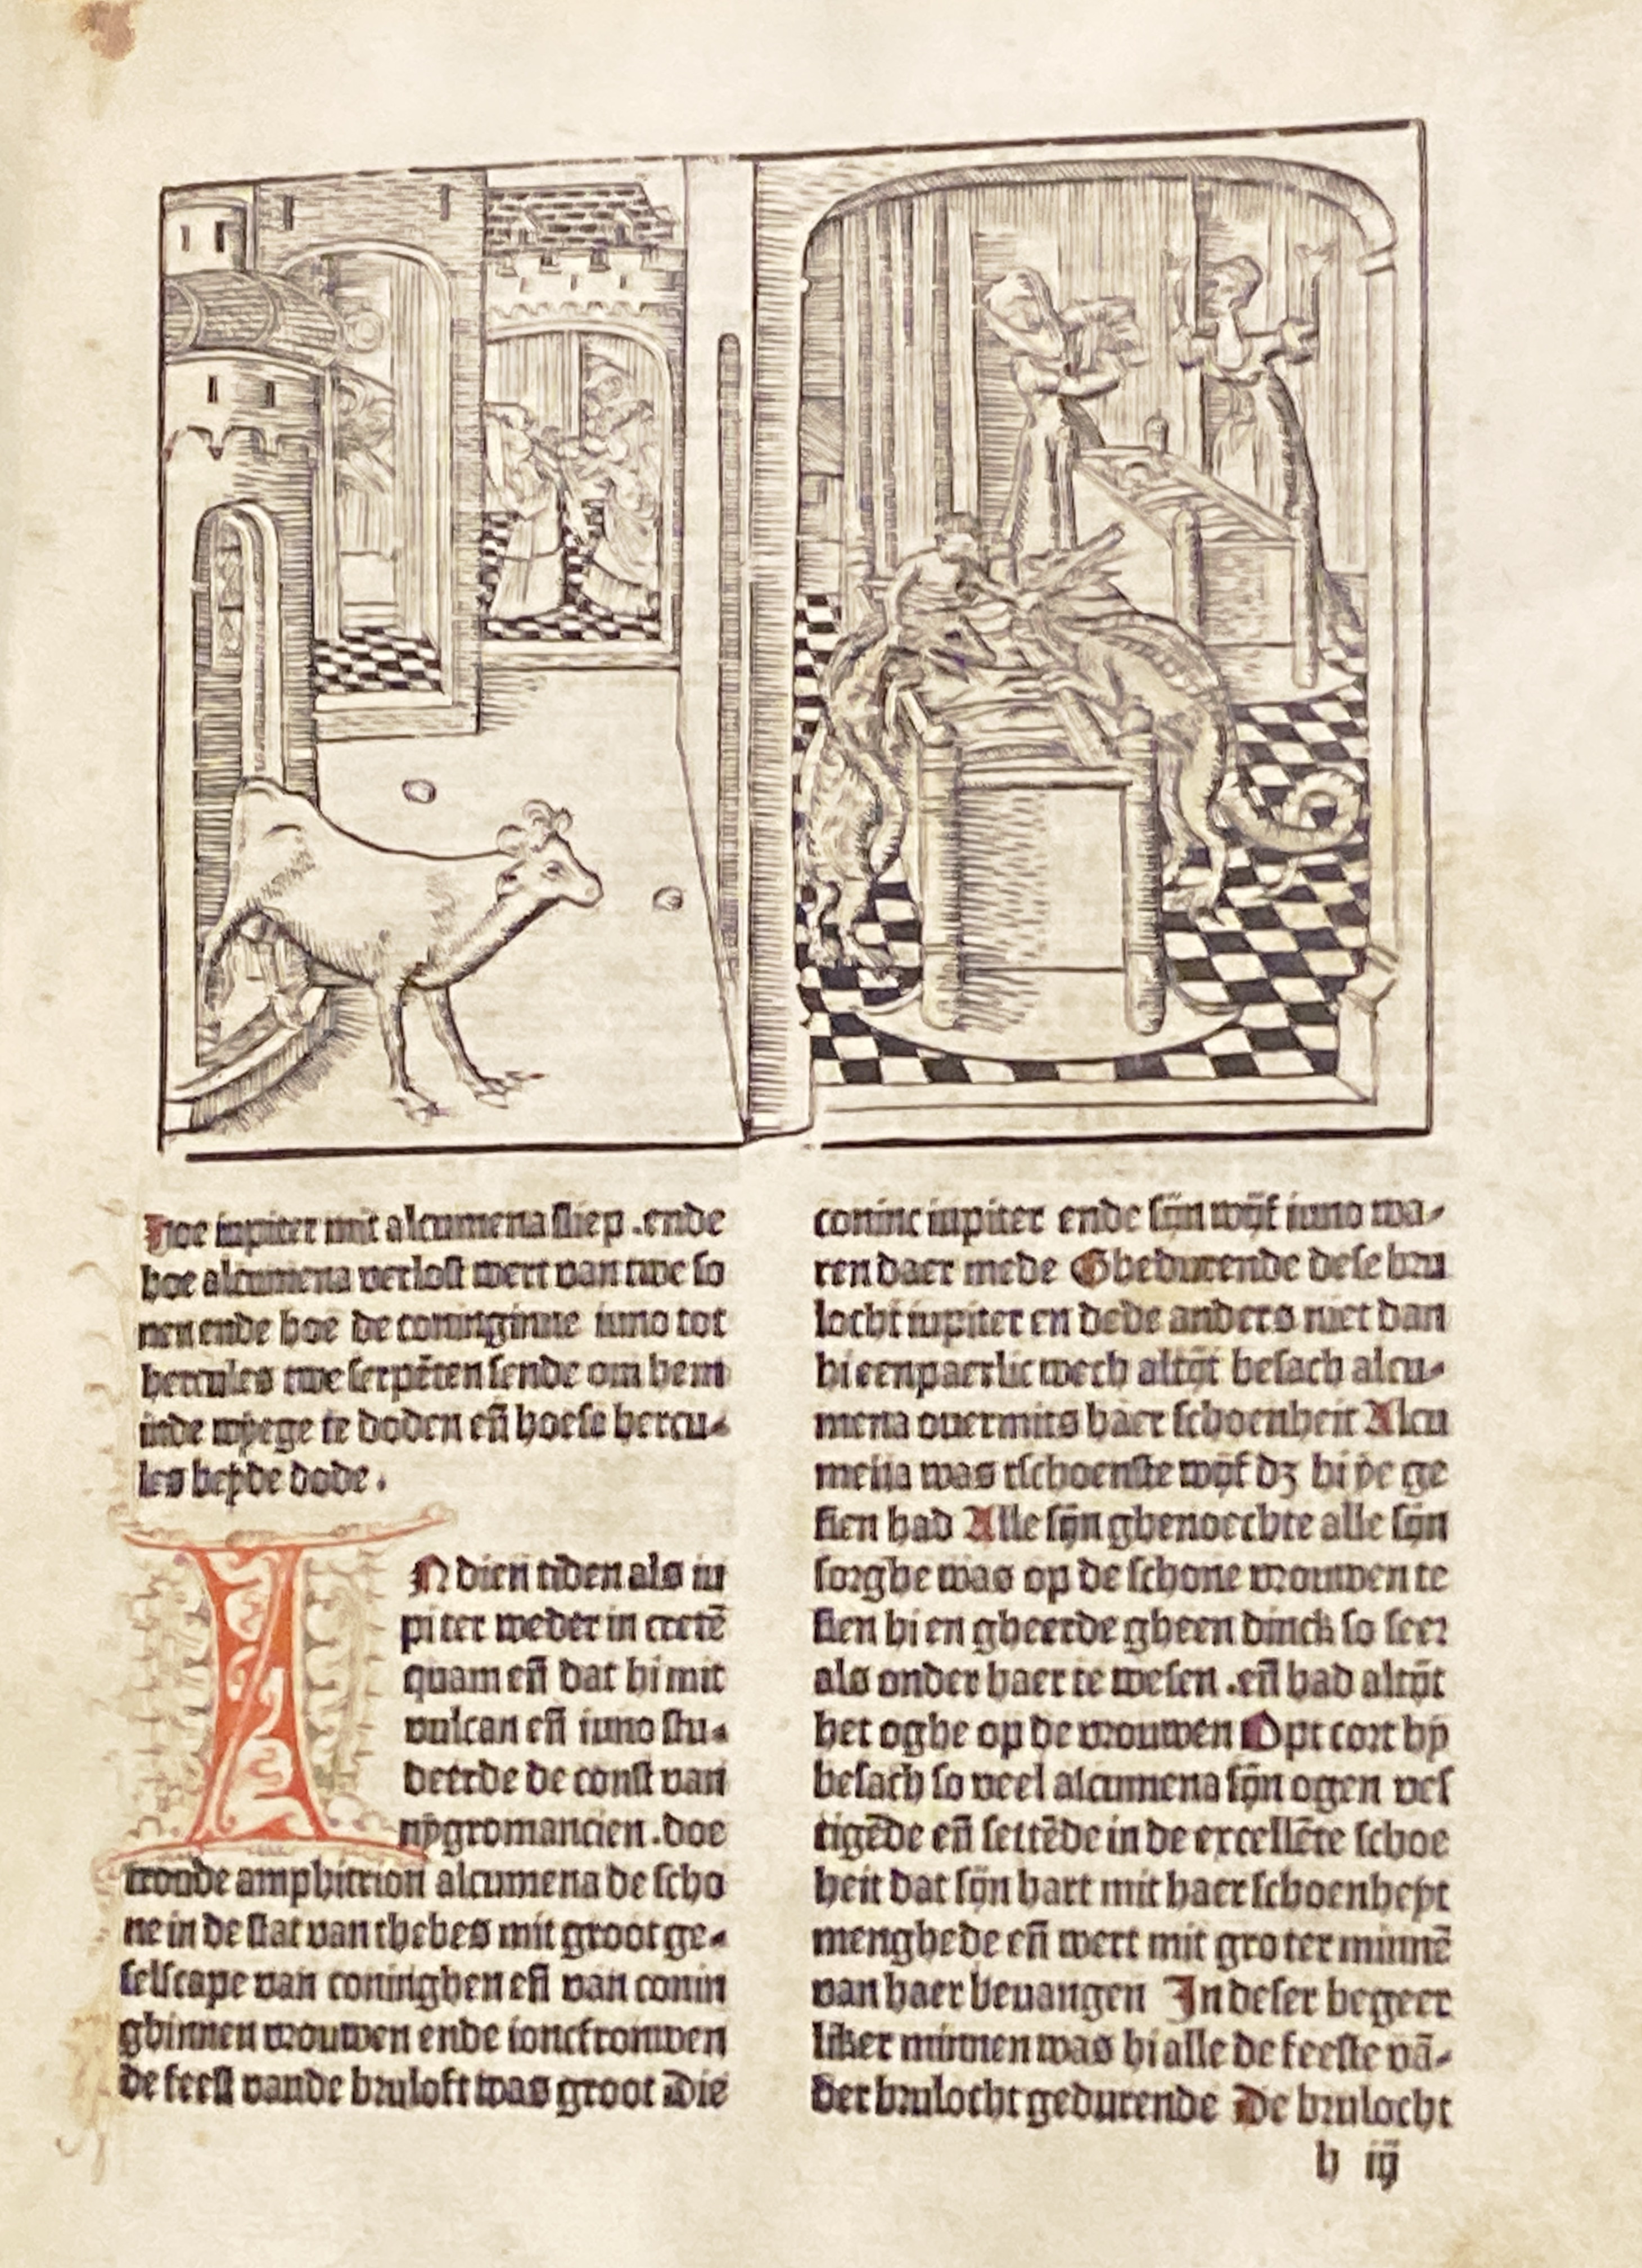 Hoe iupiter mit alcumena sliep .ende
hoe alcumena verlost wert van twe so
nen ende hoe de coninginne iuno tot
hercules twe serpēten sende om hem
inde wyege te doden eñ hoese hercu-
les beyde dode.
IN dien tiden als iu
piter weder in cretē
quam eñ dat hi mit
vulcan eñ iuno stu-
deerde de const van
nygromancien .doe
troude amphitrion alcumena de scho
ne in de stat van thebes mit groot ge-
selscape van coninghen eñ van conin
ghinnen vrouwen ende ionckrouwen
de feest vande bruloft was groot Die
coninc iupiter ende sijn wijf iuno wa-
ren daer mede Ghedurende dese bru
locht iupiter en dede anders niet dan
hi eenpaerlic wech altijt besach alcu-
mena ouermits haer schoenheit Alcu
mena was tschoenste wijf dz hi ye ge
sien had Alle sijn ghenoechte alle sijn
sorghe was op de schone vrouwen te
sien hi en gheerde gheen dinck so seer
als onder haer te wesen .eñ had altijt
het oghe op de vrouwen Opt cort hy
besach so veel alcumena sijn ogen ves
tigēde eñ settēde in de excellēte schoe
heit dat sijn hart mit haer schoenheyt
menghede eñ wert mit groter minnē
van haer beuangen In deser begeer
liker minnen was hi alle de feeste vā-
der brulocht gedurende De brulocht
h iij